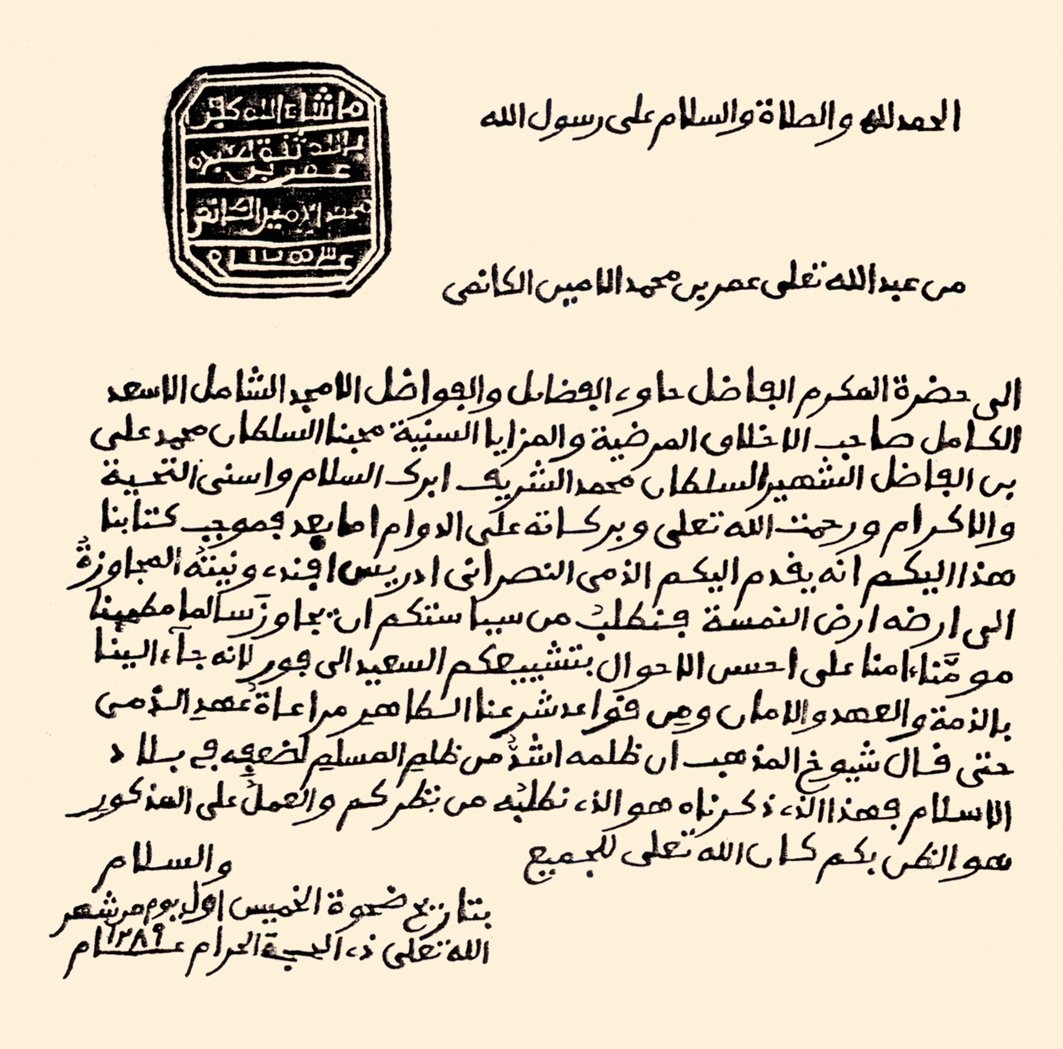 الحمد لله والصلاة والسلام على رسول الله
ما شاء الله
عمر بن
محمد الامين الكانمي
من عبد الله تعلى عمر بن محمد الامين الكانمي
الى حضرة المكرم الفاضل حاوي الفضايل والفواضل الامجد الشامل الاسعد
الكامل صاحب الاخلاق المرضية والمزايا السنية محبنا السلطان محمد على
بن الفاضل الشهير السلطان محمد الشريف ابرك السلام واسنى التحية
والاكرام ورحمت الله تعلى وبركاته على الدوام اما بعد فموجب كتابنا
هذا اليكم انه يقدم اليكم الذمى النصرانى ادريس افندي ونيته المجاوزة
الى ارضه ارض النمسة فنطلب من سياستكم ان يجاوز سالما مطمينا
مومنا امنا على احسن الاحوال بتشييعكم السعيد الى فور لانه جآء الينا
بالذمة والعهد والامان ومن قواعد شرعنا الطاهر مراعاة عهد الذمى
حتى قال شيوخ المذهب ان ظلمه اشد من ظلم المسلم لضعفه في بلاد
الاسلام فهذا الذي ذكرناه هو الذي نطلبه من نظركم والعمل على المذكور
هو الظن بكم كان الله تعلى للجميع والسلام
بتاريخ ضحوة الخميس اول يوم من شهر
الله تعلى ذي الحجة الحرام عام ١٢٨٩